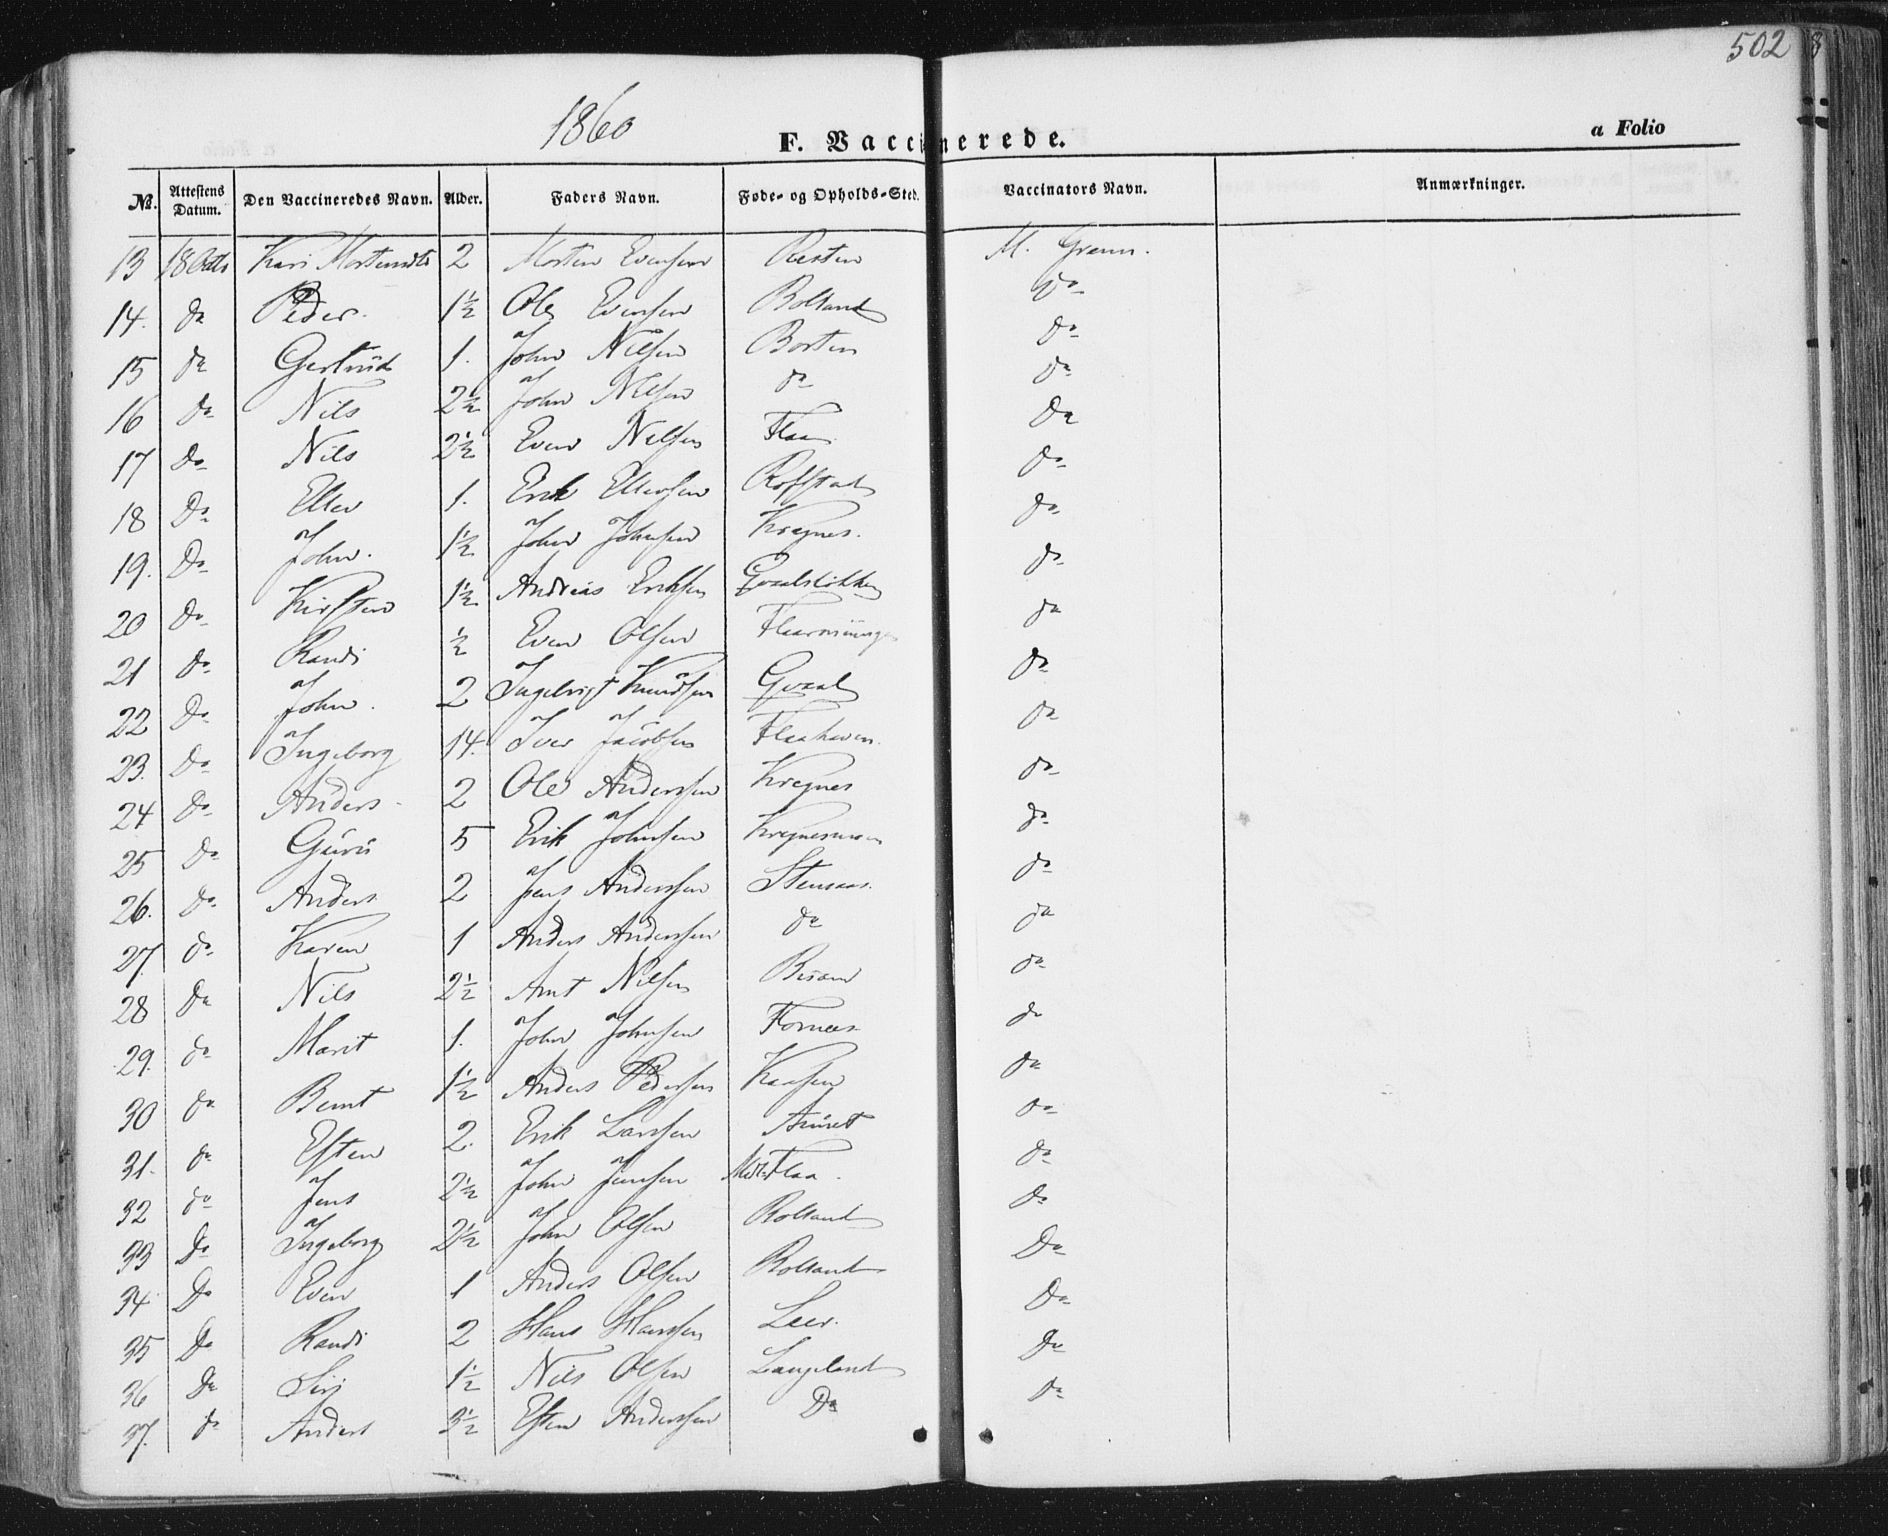 502
1860
F. Vaccinerede.
a Folio
№. Attestens Datum. Den Vaccineredes Navn. Alder. Faders Navn. Føde- og Opholds-Sted. Vaccinators Navn. Anmærkninger.
13 2 Morten Evensen M.
14. do Peder. 1½ Ole Evensen Rolland do
15 do Gertrud 1. John Nilsen Borten do
16 do Nils 2½ John Nilsen do do
17 Do Nils 2½ Even Nilsen Flaa Do
18 Do Ellev 1. Erik Ellevsen Rofstad do
19. Do John. 1½ John Johnsen Kregnes. do
20 Do Kirsten 1½ Andreas Eriksen do
21 Do Randi ½ Even Olsen do
22 Do John. 2 Ingebrigt Knudsen Gvaal do
23. Do Ingeborg 14. Iver Jacobsen do
24 Do Anders 2 Ole Anderssen Kregnes do
25 Do Guru 5 Erik Johnsen do
26. Do Anders 2 Jens Anderssen Stensaas. do
27. do Karen 1 Anders Anderssen do do
28 Do Nils 2½ Arnt Nilsen do
29. do Marit 1. John Johnsen do
30 do Bernt 1½ Anders Pedersen Kaasen do
31. do Esten 2. Erik Larssen Aunet do
32 do Jens 2½ John Jenssen Flaa. do
33 Do Ingeborg 2½ John Olsen Rolland do
34 Do Even 1 Anders Olsen Rolland Do
35 Do Randi 2 Hans Hanssen Leer. Do
36 Do Siri 1½ Nils Olsen Langeland Do
37. do Anders 3½ Esten Anderssen Do do